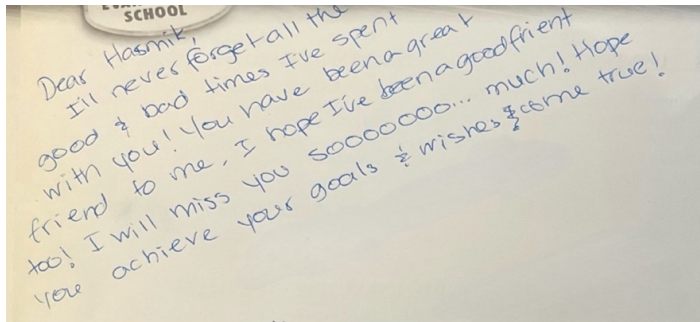 SCHOOL
Dear Hasmik,
I'll never forget all the
good & bad times I've spent
with you! You have been a great
friend to me, I hope I've been a good frient
too! I will miss you sooooooo... much! Hope
you achieve your goals & wishes & come true!